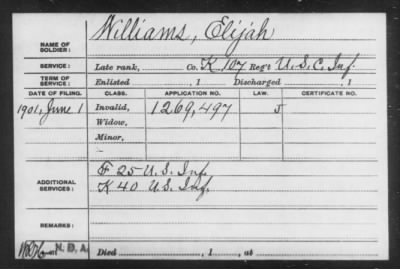 NAME OF SOLDIER: Williams, Elijah
SERVICE: Late rank, Co. K, 107 Reg't U. S. C. Inf.
TERM OF SERVICE: Enlisted , 1 Discharged , 1
DATE OF FILING. CLASS. APPLICATION NO. LAW. CERTIFICATE NO.
1901, June 1 Invalid, 1269,497 J
Widow,
Minor,
ADDITIONAL SERVICES: F 25 U. S. Inf.
K 40 U. S. Inf.
REMARKS:
N. D. A. Died , 1 , at